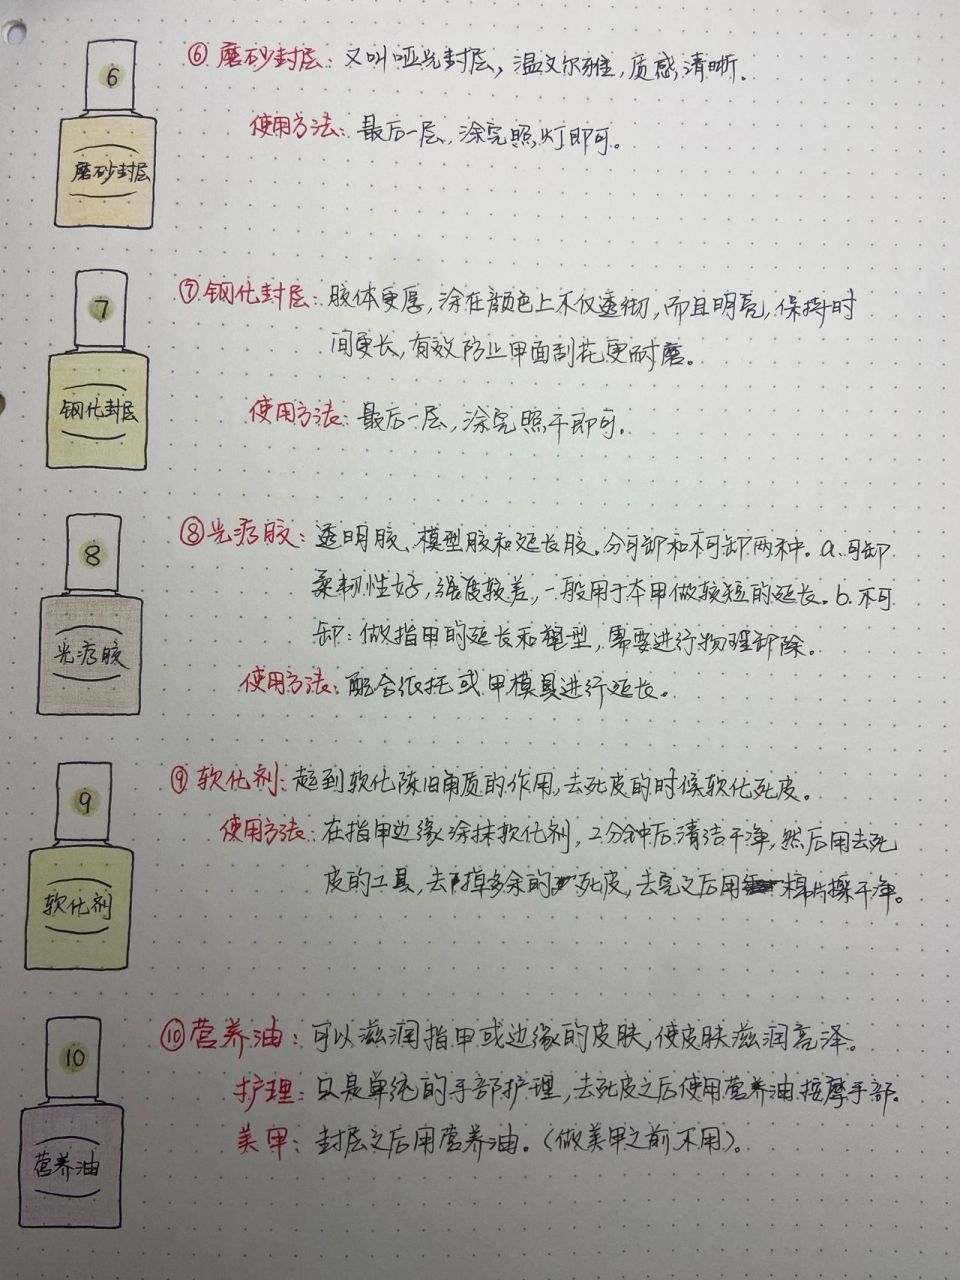 6
磨砂封层
⑥ 磨砂封层：又叫哑光封层，温文尔雅，质感清晰。
使用方法：最后一层，涂完照灯即可。
7
钢化封层
⑦ 钢化封层：胶体更厚，涂在颜色上不仅透彻，而且明亮，保持时
间更长，有效防止甲面刮花更耐磨。
使用方法：最后一层，涂完照干即可。
8
光疗胶
⑧ 光疗胶：透明胶、模型胶和延长胶。分可卸和不可卸两种。a.可卸
柔韧性好，强度较差，一般用于本甲做较短的延长。b.不可
卸：做指甲的延长和塑型，需要进行物理卸除。
使用方法：配合纸托或甲模具进行延长。
9
软化剂
⑨ 软化剂：起到软化陈旧角质的作用，去死皮的时候软化死皮。
使用方法：在指甲边缘涂抹软化剂，2分钟后清洁干净，然后用去死
皮的工具，去掉多余的死皮，去完之后用棉片擦干净。
10
营养油
⑩ 营养油：可以滋润指甲或边缘的皮肤，使皮肤滋润亮泽。
护理：只是单纯的手部护理，去死皮之后使用营养油按摩手部。
美甲：封层之后用营养油。（做美甲之前不用）。